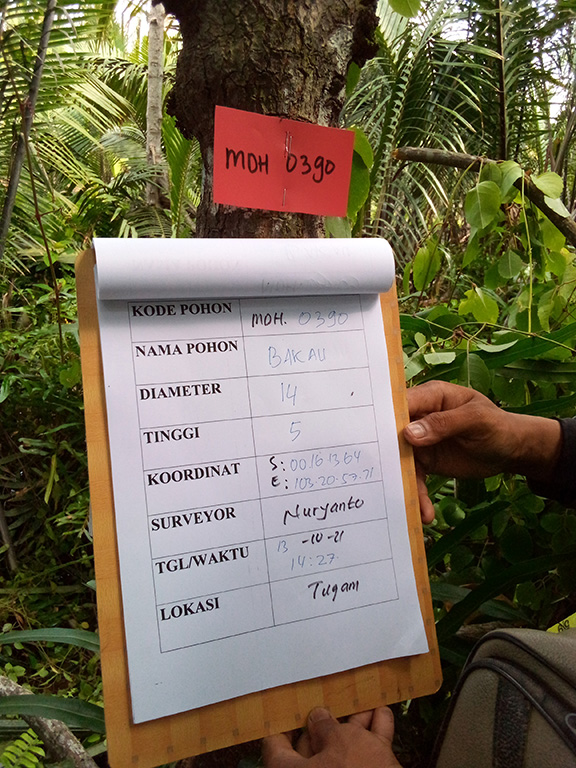 MDH 0390
KODE POHON MDH. 0390
NAMA POHON BAKAU
DIAMETER 14
TINGGI 5
KOORDINAT S: 00.16.13.64
E: 103.20.57.71
SURVEYOR Nuryanto
TGL/WAKTU 13 -10-21
14:27
LOKASI Tugam